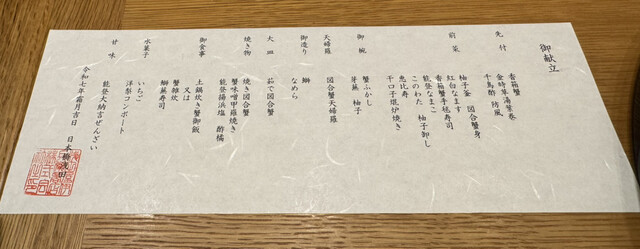 御献立
先付
香箱蟹
金時草湯葉巻
千鳥酢 防風
前菜
柚子釜 図合蟹身
紅白なます
香箱蟹手毬寿司
能登なまこ
このわた 柚子卸し
恵比寿
干口子焜炉焼き
御椀
蟹ふかし
芽蕪 柚子
天婦羅
図合蟹天婦羅
御造り
鰤
なめら
大皿
茹で図合蟹
焼き物
焼き図合蟹
蟹味噌甲羅焼き
能登揚浜塩 酢橘
御食事
土鍋炊き蟹御飯
又は
蟹雑炊
鰤蕪寿司
水菓子
いちご
洋梨コンポート
甘味
能登大納言ぜんざい
令和七年霜月吉日 日本橋浅田